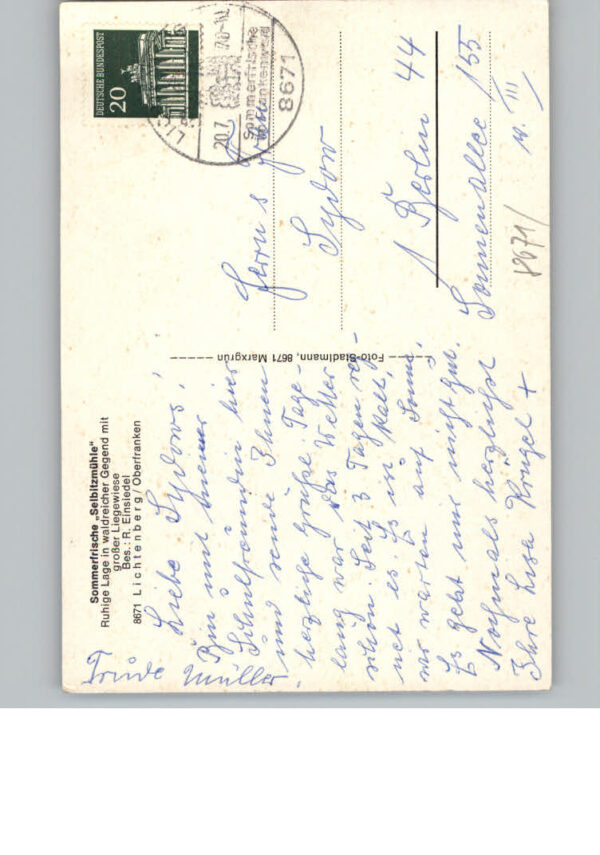 Sommerfrische „Selbitzmühle"
Ruhige Lage in waldreicher Gegend mit
großer Liegewiese
Bes.: R. Einsiedel
8671 Lichtenberg/Oberfranken
Liebe Sydows!
Bin mit meiner
Schulfreundin hier
und sende Ihnen
herzliche Grüße. Tage-
lang war das Wetter
schön. Seit 3 Tagen reg-
net es. Es ist kalt,
wir warten auf Sonne.
Es geht mir nicht gut.
Nochmals herzlichst
Ihre Lisa Krügel +
Trude Müller.
Foto-Stadtmann, 8671 Marxgrün
DEUTSCHE BUNDESPOST
20
20.7.70-12
Sommerfrische
im Frankenwald
8671
Sydow
1 Berlin 44
Sonnenallee 155
III
8671/